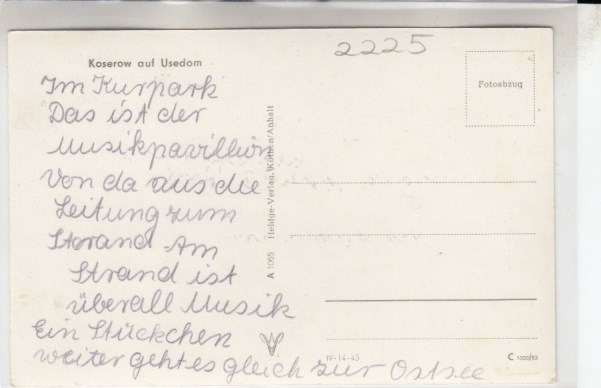 Koserow auf Usedom
2225
Fotoabzug
Im Kurpark
Das ist der
Musikpavillion
Von da aus die
Leitung zum
Strand Am
Strand ist
überall Musik
Ein Stückchen
weiter geht es gleich zur Ostsee
A 1055 Heldge-Verlag, Köthen/Anhalt
IV-14-45
C